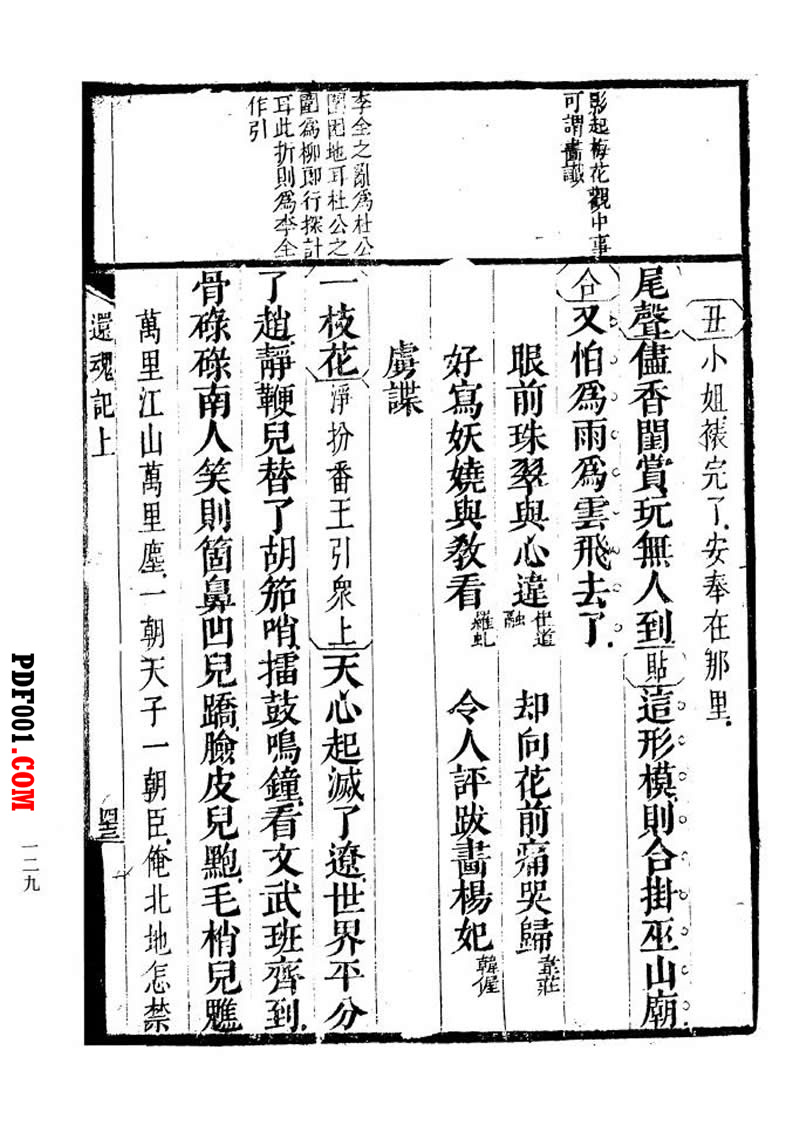 影起梅花觀中事
可謂畵讖
李全之亂為杜公
圍困地耳杜公之
圍為柳郎行探計
耳此折則為李全
作引
丑小姐裱完了安奉在那里
尾聲儘香閨賞玩無人到貼這形模則合掛巫山廟
合又怕為雨為雲飛去了
眼前珠翠與心違崔道融　却向花前痛哭歸韋莊
好寫妖嬈與教看羅虬　令人評跋畵楊妃韓偓
虜諜
一枝花淨扮番王引衆上天心起滅了遼世界平分
了趙靜鞭兒替了胡笳哨擂鼓鳴鐘看文武班齊到
骨碌碌南人笑則箇鼻凹兒蹻臉皮兒皰毛梢兒魋
萬里江山萬里塵一朝天子一朝臣俺北地怎禁
還魂記上
四三
一二九
PDF001.COM